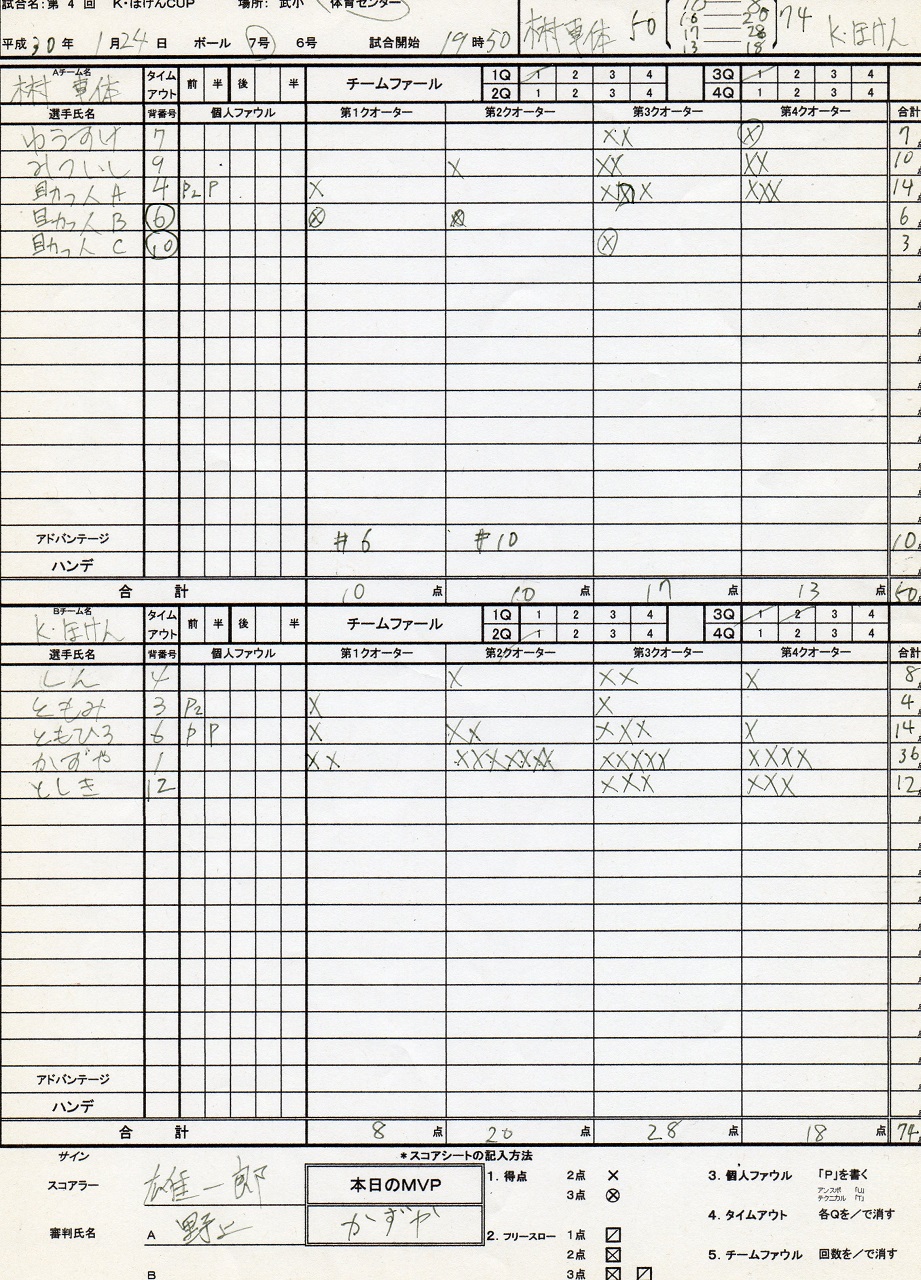 試合名:第 4 回 K・ほけんCUP 場所: 武小 体育センター
平成 30 年 1 月 24 日 ボール 7号 6号 試合開始 19 時 50
50 74 K・ほけん
16 20
17 28
13 18
Aチーム名 タイムアウト 前 半 後 半 チームファール 1Q 1 2 3 4 3Q 1 2 3 4
2Q 1 2 3 4 4Q 1 2 3 4
選手氏名 背番号 個人ファウル 第1クオーター 第2クオーター 第3クオーター 第4クオーター 合計
ゆうすけ 7 XX ⓧ 7
みついし 9 X XX XX 10
助っ人 A 4 P2 P X XXX 14
助っ人 B 6 ⓧ ⓧ 6
助っ人 C 10 ⓧ 3
アドバンテージ #6 #10 10
ハンデ
合 計 10 点 10 点 17 点 13 点 50
Bチーム名 タイムアウト 前 半 後 半 チームファール 1Q 1 2 3 4 3Q 1 2 3 4
K・ほけん 2Q 1 2 3 4 4Q 1 2 3 4
選手氏名 背番号 個人ファウル 第1クオーター 第2クオーター 第3クオーター 第4クオーター 合計
しん 4 X XX X 8
ともみ 3 P2 X X 4
ともひろ 6 P P X XX XXX X 14
かずや 1 XX XXXXXXX XXXXX XXXX 36
としき 12 XXX XXX 12
アドバンテージ
ハンデ
合 計 8 点 20 点 28 点 18 点 74
サイン *スコアシートの記入方法
スコアラー 雄一郎 本日のMVP 1. 得点 2点 × 3. 個人ファウル 「P」を書く
3点 ⊗ アンスポ 「U」
テクニカル 「T」
審判氏名 A 野上 かずや 4. タイムアウト 各Qを/で消す
2. フリースロー 1点 ⧄
2点 ☒ 5. チームファウル 回数を/で消す
B 3点 ☒ ⧄